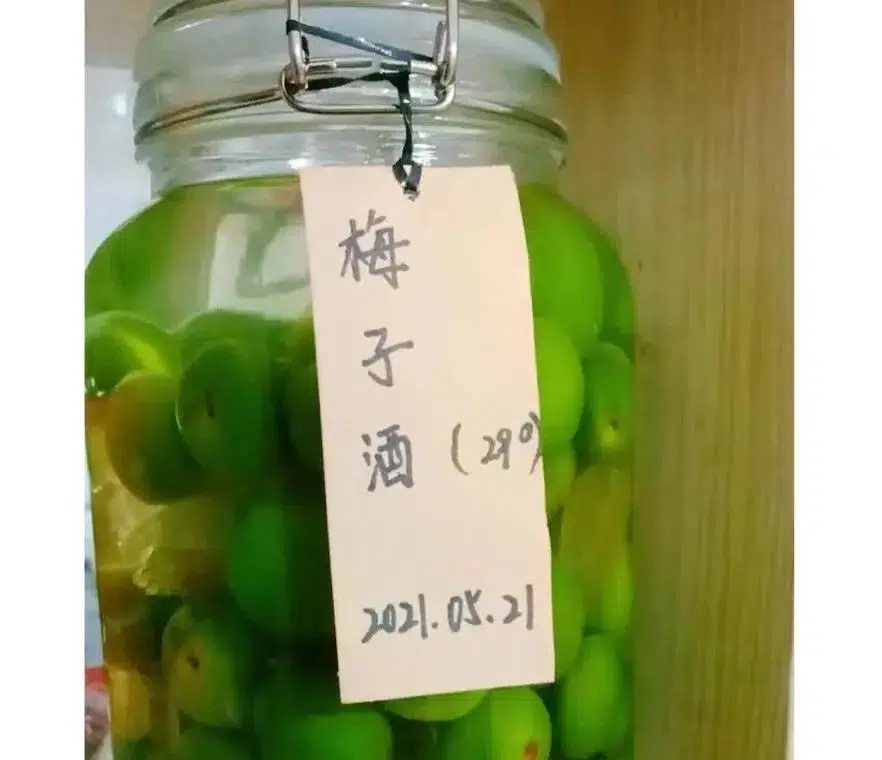 梅子酒(29°)
2021.05.21